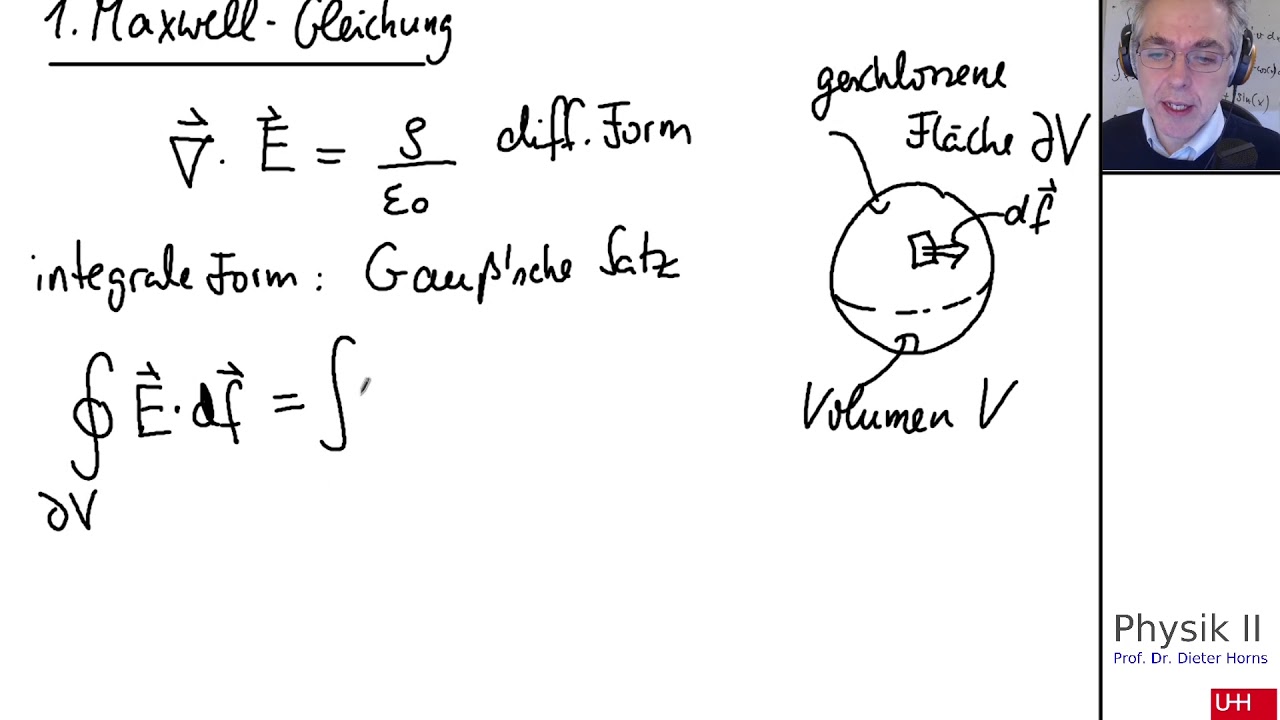 1. Maxwell-Gleichung
∇⃗ · E⃗ = ρ/ε₀ diff. Form
integrale Form: Gauß'sche Satz
∮ E⃗ · df⃗ = ∫
∂V
geschlossene
Fläche ∂V
df⃗
Volumen V
Physik II
Prof. Dr. Dieter Horns
UHH